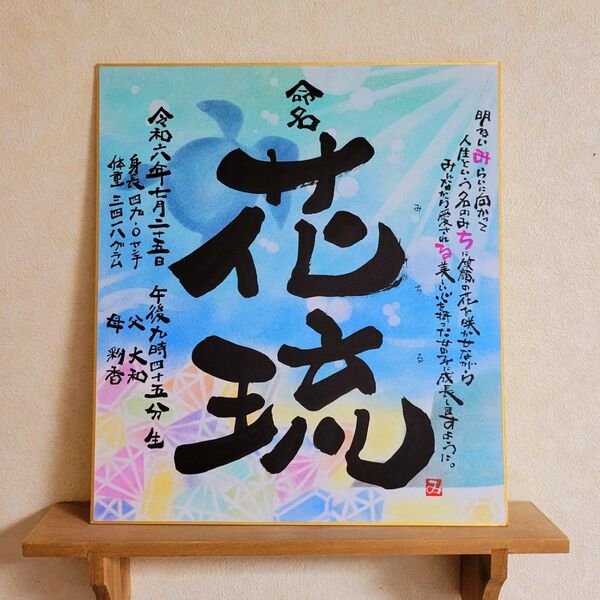 明るいみらいに向かって
人生という名のみちに笑顔の花を咲かせながら
みんなから愛される美しい心を持った女の子に成長しますように。
命名
花琉
みちる
令和六年七月二十五日 午後九時四十五分 生
身長 四九・〇センチ
体重 三四一八グラム
父 大和
母 彩香
み